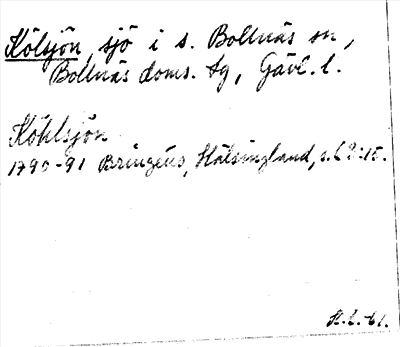 Kölsjön, sjö i s. Bollnäs sn,
Bollnäs doms. tg, Gävl. l.
Köhlsjön
1790-91 Bringéus, Hälsingland, s. 69:15.
H.L.-61.